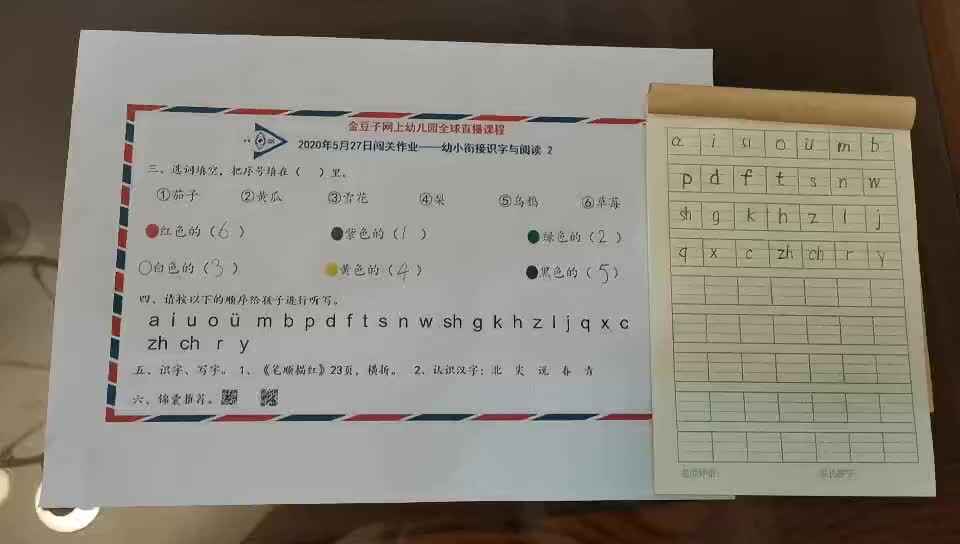 金豆子网上幼儿园全球直播课程
2020年5月27日闯关作业——幼小衔接识字与阅读 2
三、选词填空，把序号填在（ ）里。
①茄子 ②黄瓜 ③雪花 ④梨 ⑤乌鸦 ⑥草莓
红色的（6） 紫色的（1） 绿色的（2）
白色的（3） 黄色的（4） 黑色的（5）
四、请按以下的顺序给孩子进行听写。
a i u o ü m b p d f t s n w sh g k h z l j q x c
zh ch r y
五、识字、写字。 1、《笔顺描红》23页，横折。 2、认识汉字：北 尖 说 春 青
六、锦囊推荐。
a i u o ü m b
p d f t s n w
sh g k h z l j
q x c zh ch r y